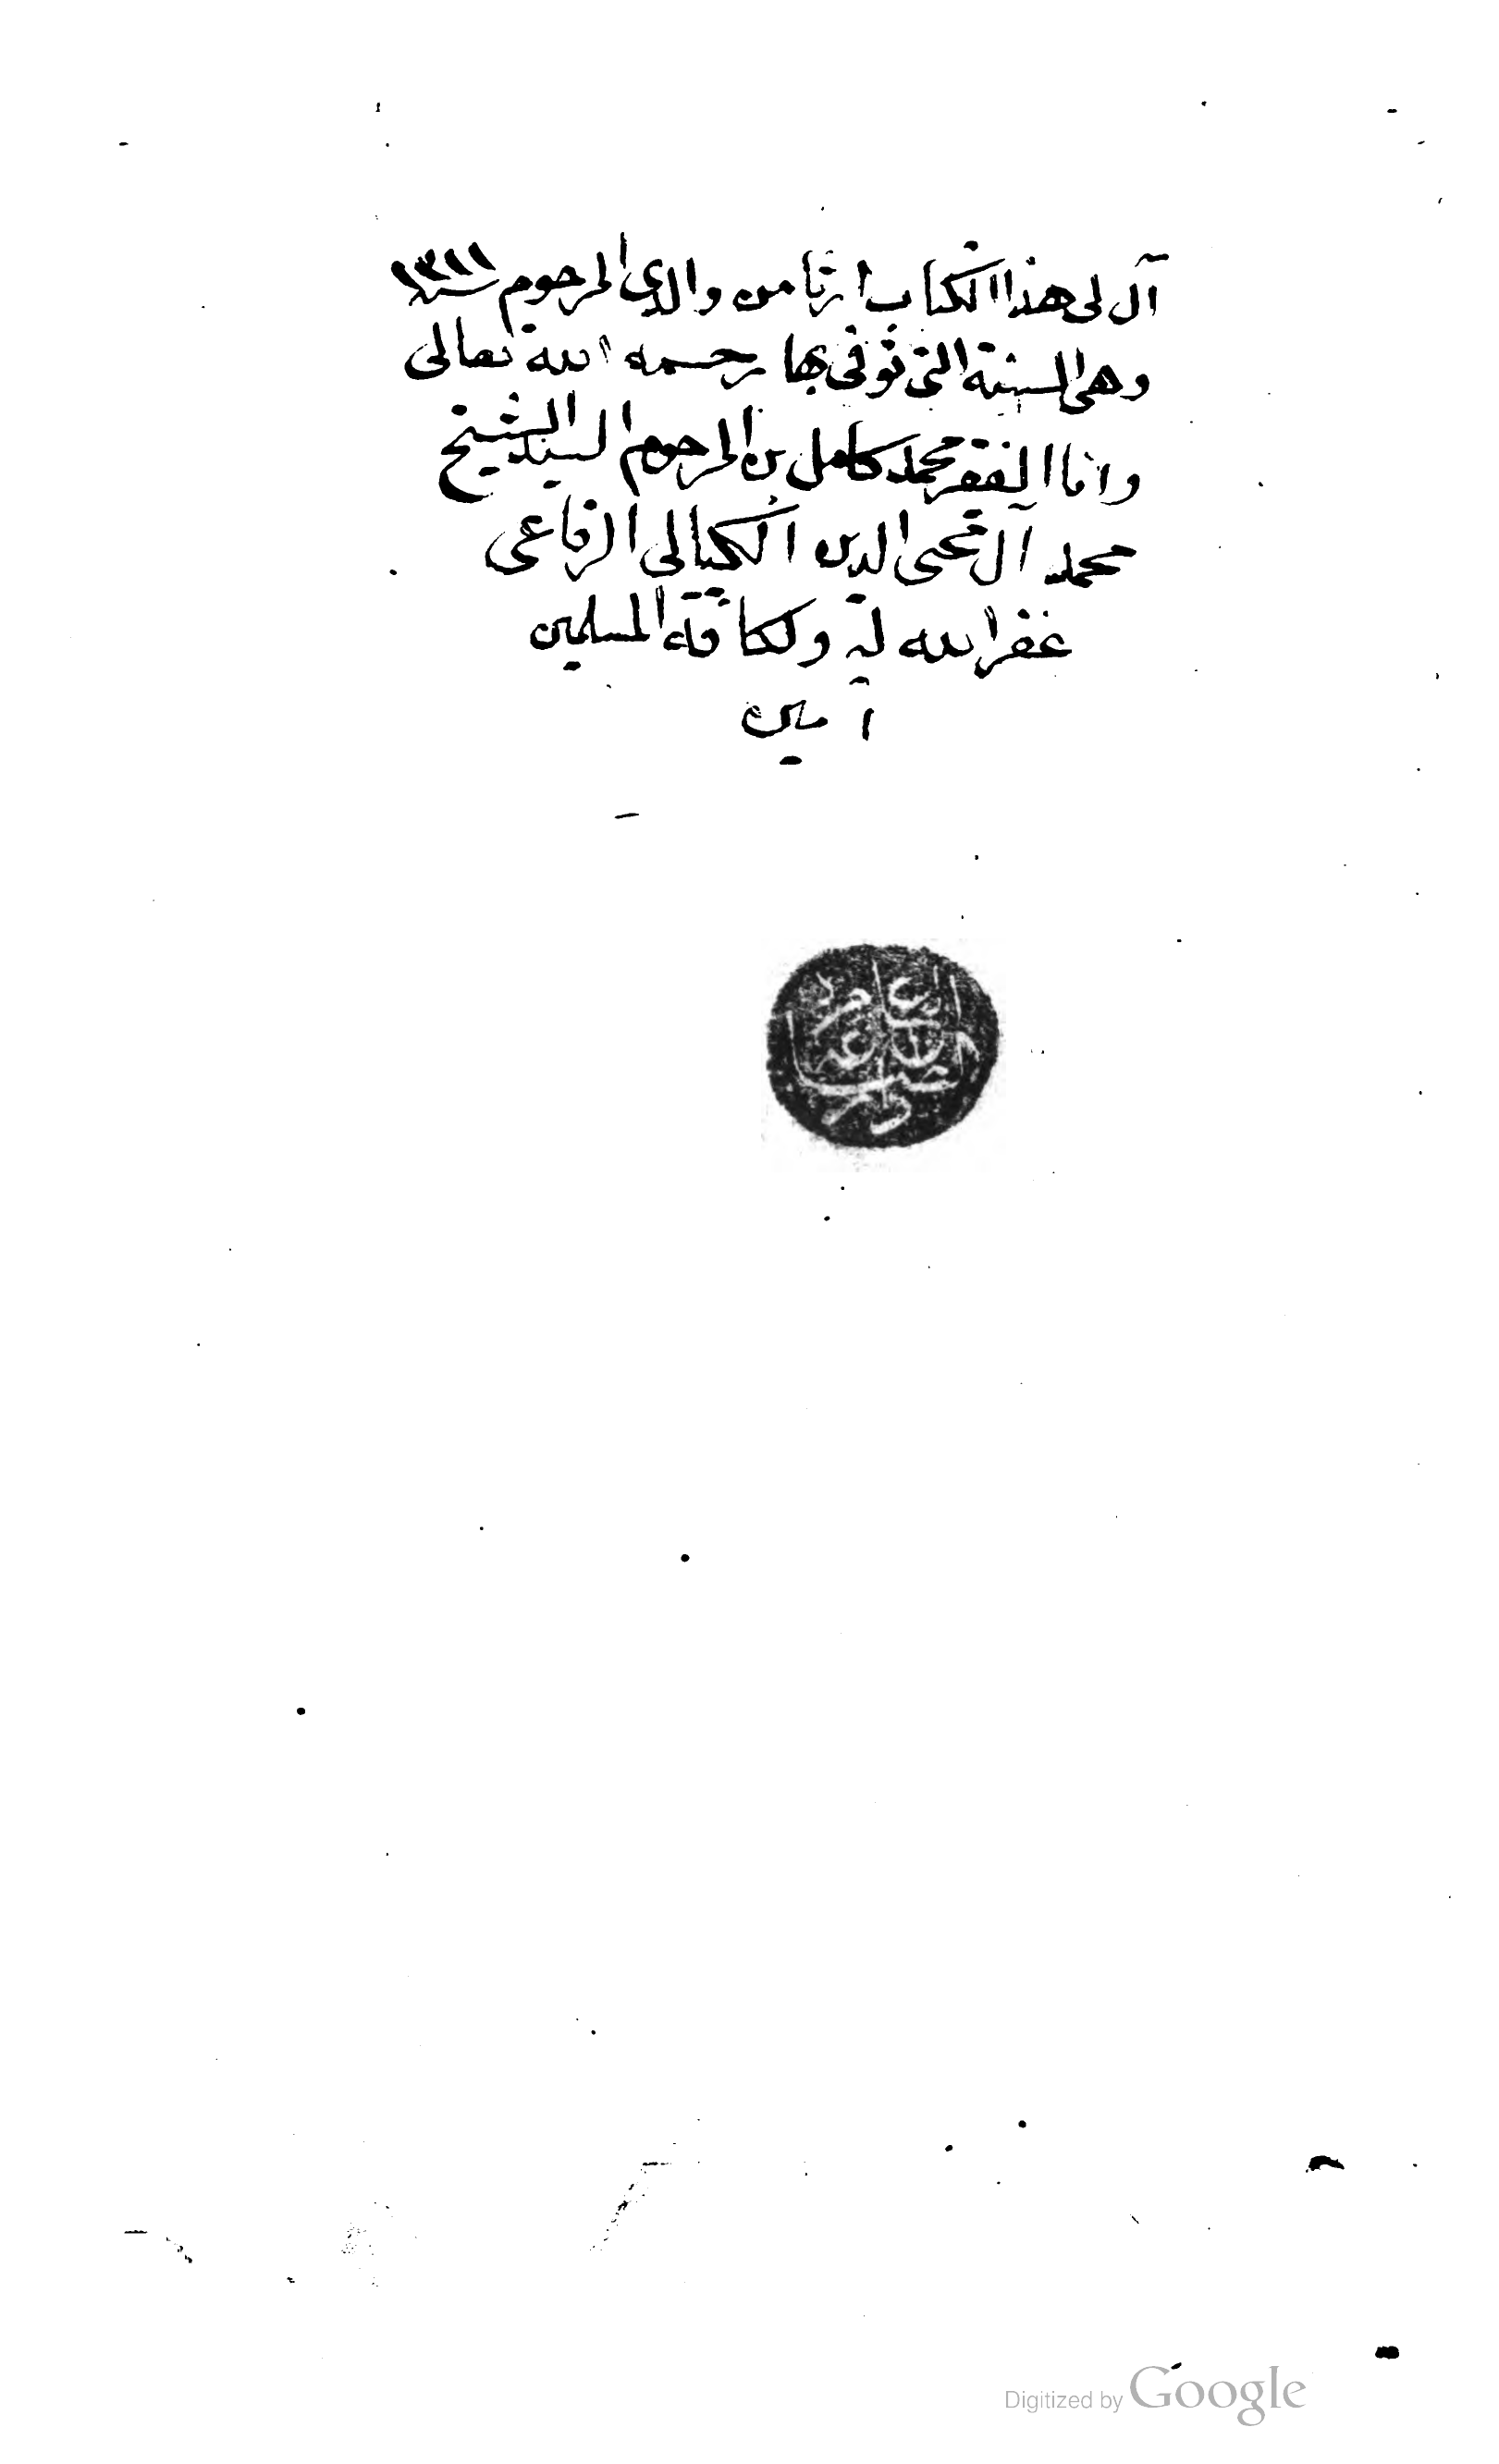 آل لى هذا الكتاب ارثا من والدى المرحوم سنة ١٣١١
وهى السنة التى توفى بها رحمه الله تعالى
وانا الفقير محمد كامل بن المرحوم السيد الشيخ
محمد آل محيى الدين الكيالى الرفاعى
غفر الله له ولكافة المسلمين
آمين
Digitized by Google